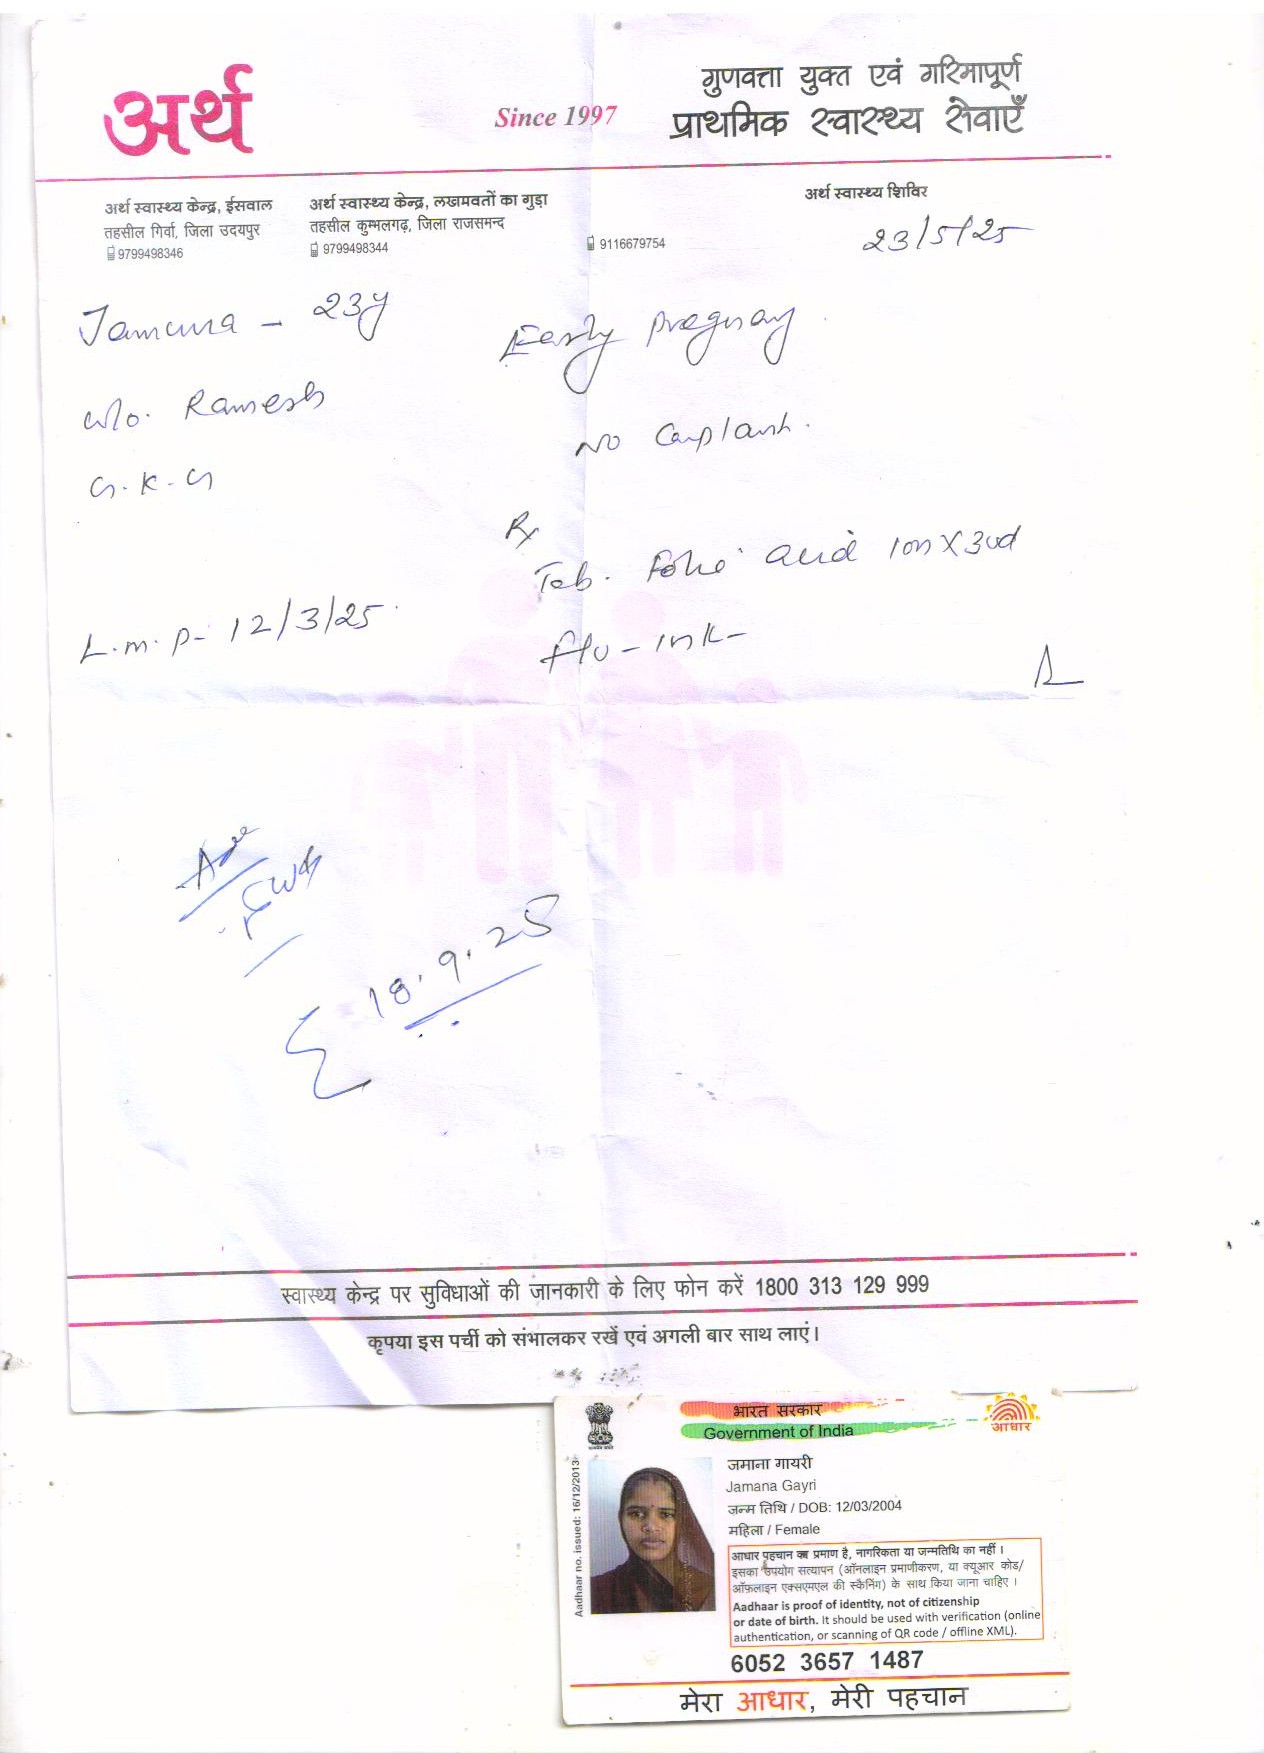 अर्थ
Since 1997
गुणवत्ता युक्त एवं गरिमापूर्ण
प्राथमिक स्वास्थ्य सेवाएँ
अर्थ स्वास्थ्य केन्द्र, ईसवाल
तहसील गिर्वा, जिला उदयपुर
9799498346
अर्थ स्वास्थ्य केन्द्र, लखमावतों का गुड़ा
तहसील कुम्भलगढ़, जिला राजसमन्द
9799498344
9116679754
अर्थ स्वास्थ्य शिविर
23/5/25
Jamuna - 23y
w/o. Ramesh
G.K.G
L.m.p- 12/3/25.
Early pregnancy.
No Complaint.
Rx
Tab. Folic acid 1on X 30d
18.9.25
स्वास्थ्य केन्द्र पर सुविधाओं की जानकारी के लिए फोन करें 1800 313 129 999
कृपया इस पर्ची को संभालकर रखें एवं अगली बार साथ लाएं।
भारत सरकार
Government of India
आधार
Aadhaar no. issued: 16/12/2013
जमाना गायरी
Jamana Gayri
जन्म तिथि / DOB: 12/03/2004
महिला / Female
आधार पहचान का प्रमाण है, नागरिकता या जन्मतिथि का नहीं ।
इसका उपयोग सत्यापन (ऑनलाइन प्रमाणीकरण, या क्यूआर कोड/
ऑफ़लाइन एक्सएमएल की स्कैनिंग) के साथ किया जाना चाहिए ।
Aadhaar is proof of identity, not of citizenship
or date of birth. It should be used with verification (online
authentication, or scanning of QR code / offline XML).
6052 3657 1487
मेरा आधार, मेरी पहचान